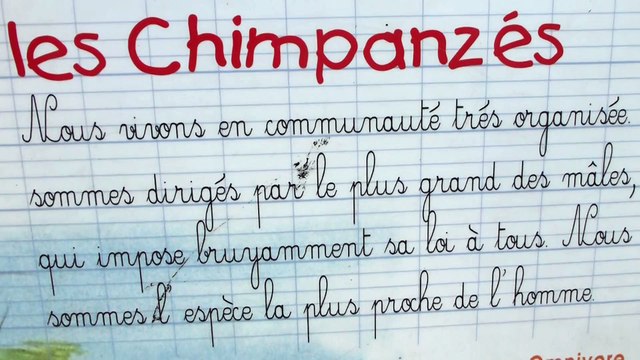 les Chimpanzés
Nous vivons en communauté trés organisée.
sommes dirigés par le plus grand des mâles,
qui impose bruyamment sa loi à tous. Nous
sommes l'espèce la plus proche de l'homme.
Omnivore